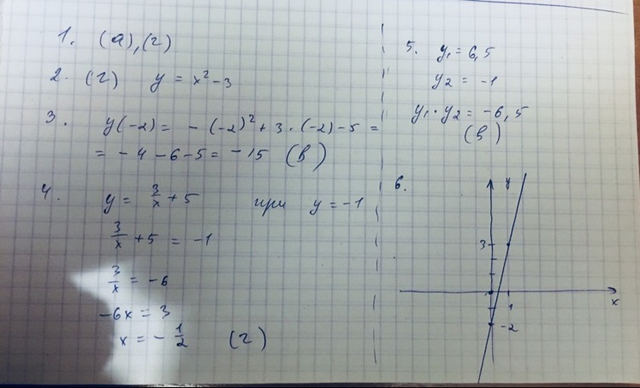 1. (а), (г)
2. (г) y = x² - 3
3. y(-2) = - (-2)² + 3 · (-2) - 5 =
= - 4 - 6 - 5 = - 15 (в)
4. y = 3/x + 5 при y = -1
3/x + 5 = -1
3/x = -6
-6x = 3
x = - 1/2 (г)
5. y₁ = 6,5
y₂ = -1
y₁ · y₂ = -6,5
(в)
6.
y
3
1
x
-2